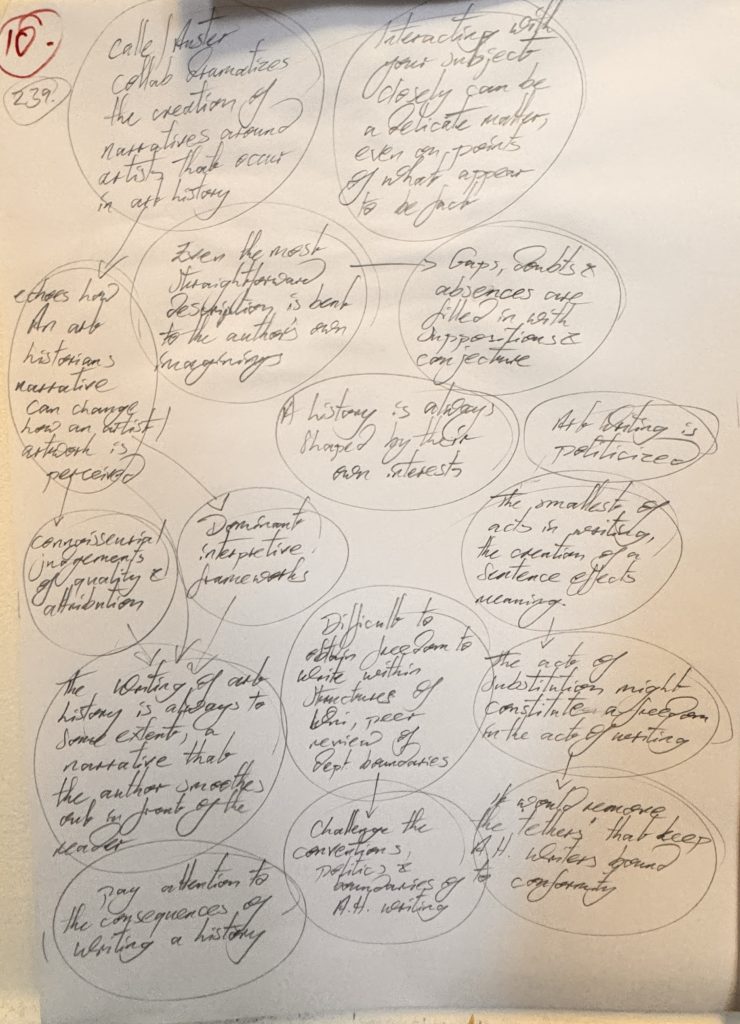 10.
239.
Calle/Auster
collab dramatizes
the creation of
narratives around
artists that occur
in art history
Interacting with
your subject
closely can be
a delicate matter,
even on points
of what appear
to be fact
echoes how
An art
historians
narrative
can change
how an artist/
artwork is
perceived
Even the most
straightforward
description is bent
to the author's own
imaginings
Gaps, doubts &
absences are
filled in with
suppositions &
conjecture
A history is always
shaped by their
own interests
Art writing is
politicized
connoisseurial
judgements
of quality &
attribution
Dominant
interpretive
frameworks
the smallest of
acts in writing,
the creation of a
sentence effects
meaning.
Difficult to
obtain freedom to
write within
structures of
Uni, peer
review of
dept boundaries
the act of
substitution might
constitute a freedom
in the act of writing
the writing of art
history is always to
some extent, a
narrative that
the author smoothes
out in front of the
reader
Challenge the
conventions,
politics &
boundaries of
A.H. writing
It would remove
the 'tethers' that keep
A.H. writers bound
to conformity
pay attention to
the consequences of
writing a history